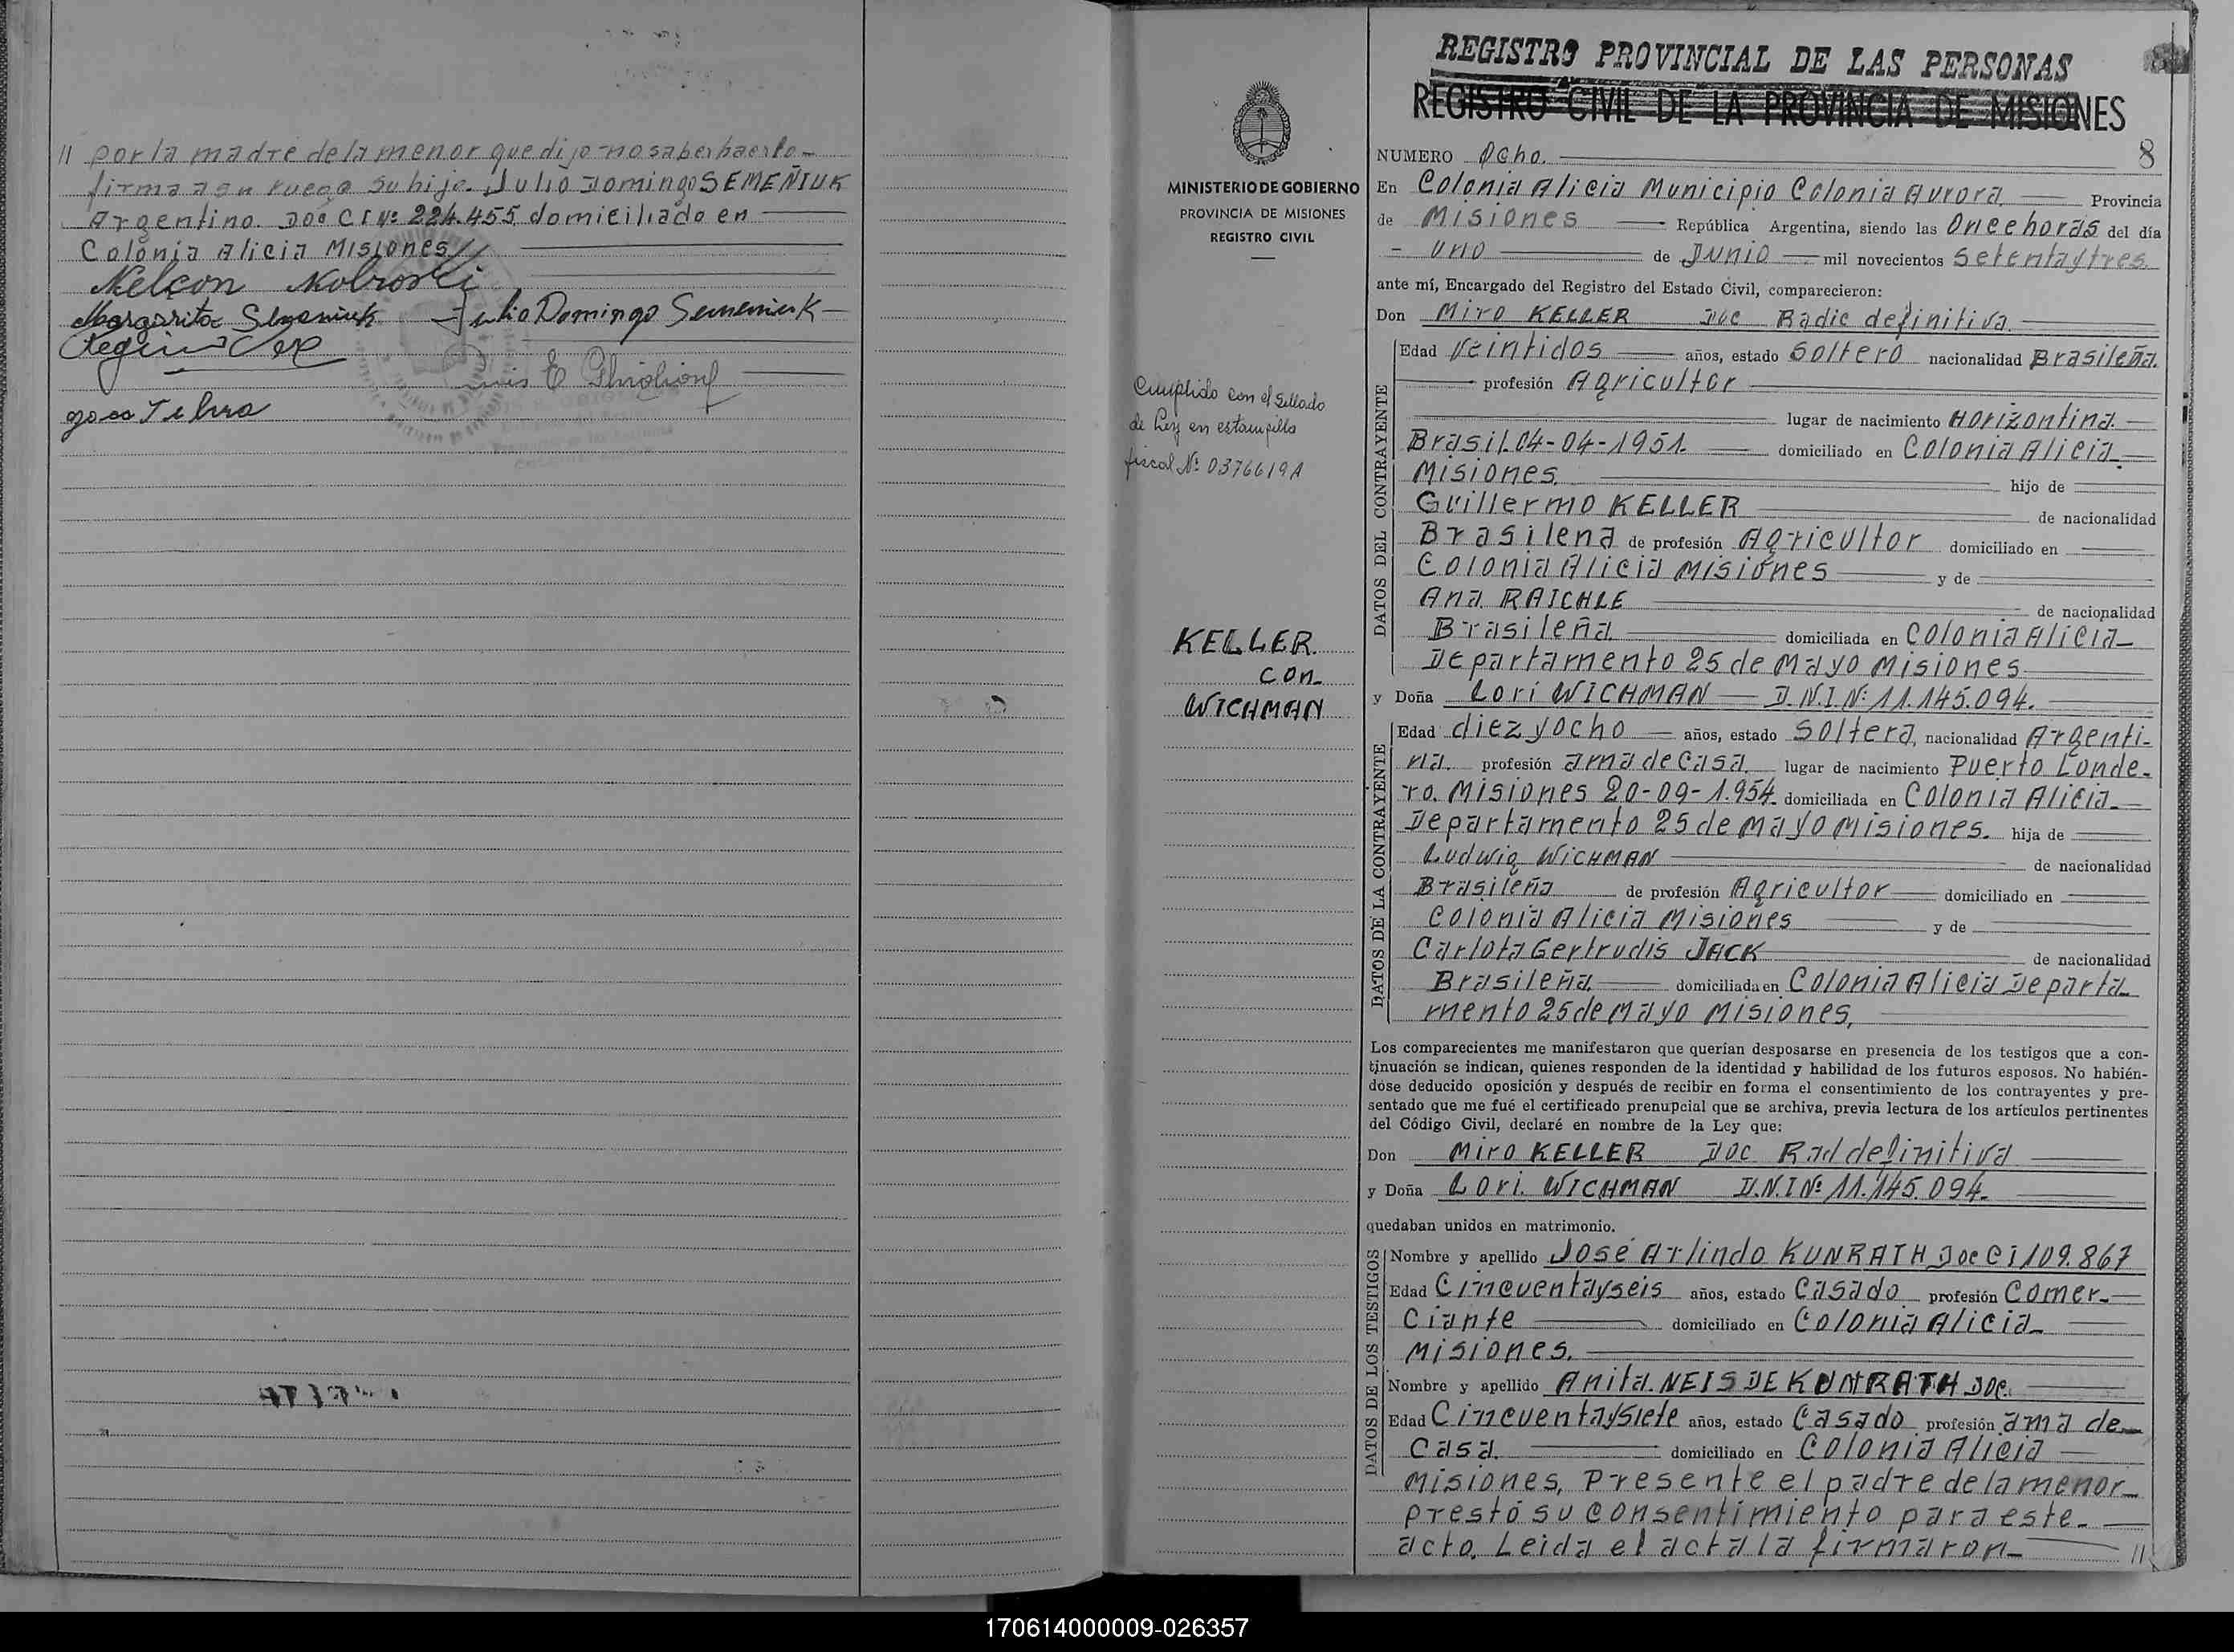 // por la madre de la menor que dijo no saber hacerlo-
firma a su ruego su hijo. Julio Domingo SEMEÑIUK
Argentino. Doc C I Nº 224.455 domiciliado en
Colonia Alicia Misiones
Nelson
Margarita
Julio Domingo Semeniuk
Luis E
MINISTERIO DE GOBIERNO
PROVINCIA DE MISIONES
REGISTRO CIVIL
Cumplido con el sellado
de Ley en estampilla
fiscal Nº 0376619A
KELLER
con
WICHMAN
REGISTRO PROVINCIAL DE LAS PERSONAS
REGISTRO CIVIL DE LA PROVINCIA DE MISIONES
8
NUMERO Ocho.
En Colonia Alicia Municipio Colonia Aurora. Provincia
de Misiones República Argentina, siendo las Once horas del día
- uno de Junio mil novecientos setenta y tres.
ante mí, Encargado del Registro del Estado Civil, comparecieron:
Don Miro KELLER Doc Radic definitiva.
DATOS DEL CONTRAYENTE
Edad Veintidos años, estado Soltero nacionalidad Brasileña.
profesión Agricultor
lugar de nacimiento Horizontina.
Brasil. 04-04-1951. domiciliado en Colonia Alicia
Misiones. hijo de
Guillermo KELLER de nacionalidad
Brasilena de profesión Agricultor domiciliado en
Colonia Alicia Misiones y de
Ana RAICHLE de nacionalidad
Brasileña. domiciliada en Colonia Alicia
Departamento 25 de Mayo Misiones
y Doña Lori WICHMAN D.N.I.Nº 11.145.094.
DATOS DE LA CONTRAYENTE
Edad diez y ocho años, estado Soltera, nacionalidad Argenti-
na. profesión ama de casa. lugar de nacimiento Puerto Londe-
ro. Misiones 20-09-1.954. domiciliada en Colonia Alicia
Departamento 25 de Mayo Misiones. hija de
Ludwig WICHMAN de nacionalidad
Brasileña de profesión Agricultor domiciliado en
Colonia Alicia Misiones y de
Carlota Gertrudis JACK de nacionalidad
Brasileña. domiciliada en Colonia Alicia Departa-
mento 25 de Mayo Misiones.
Los comparecientes me manifestaron que querían desposarse en presencia de los testigos que a con-
tinuación se indican, quienes responden de la identidad y habilidad de los futuros esposos. No habién-
dose deducido oposición y después de recibir en forma el consentimiento de los contrayentes y pre-
sentado que me fué el certificado prenupcial que se archiva, previa lectura de los artículos pertinentes
del Código Civil, declaré en nombre de la Ley que:
Don Miro KELLER Doc Rad definitiva
y Doña Lori. WICHMAN D.N.I Nº 11.145.094.
quedaban unidos en matrimonio.
DATOS DE LOS TESTIGOS
Nombre y apellido José Arlindo KUNRATH Doc C I 109.867
Edad Cincuenta y seis años, estado Casado profesión Comer-
ciante domiciliado en Colonia Alicia
Misiones.
Nombre y apellido Anita. NEIS DE KUNRATH Doc.
Edad Cincuenta y siete años, estado Casado profesión ama de
casa. domiciliado en Colonia Alicia
Misiones, Presente el padre de la menor
prestó su consentimiento para este
acto. Leida el acta la firmaron //
170614000009-026357